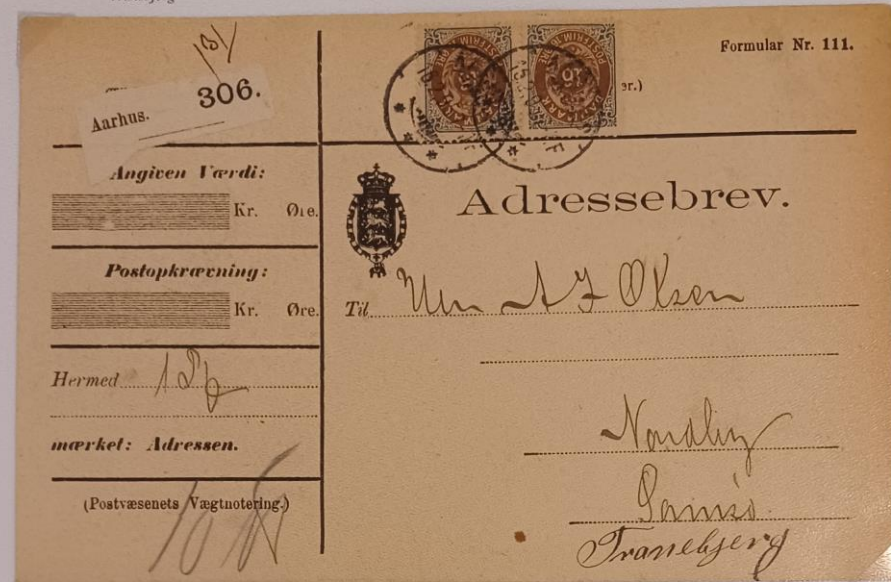 131
Aarhus. 306.
Formular Nr. 111.
Angiven Værdi:
Kr. Øre.
Postopkrævning:
Kr. Øre.
Hermed 1 Pk
mærket: Adressen.
(Postvæsenets Vægtnotering.)
10
Adressebrev.
Til A J Olsen
Nordby
Samsø
Tranebjerg